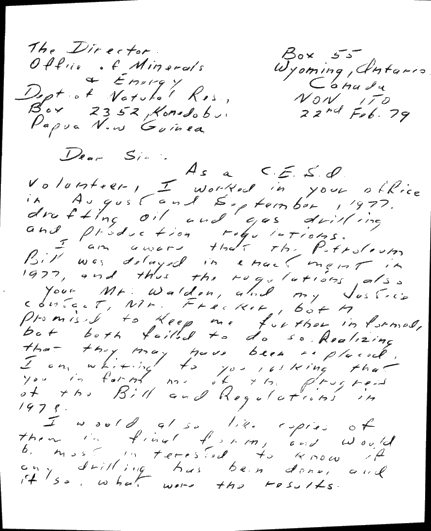 The Director.
Office of Minerals
& Energy
Dept of Natural Res,
Box 2352, Konedobu,
Papua New Guinea
Box 55
Wyoming, Ontario
Canada
NON 1T0
22nd Feb. 79
Dear Sir.
As a C.E.S.O
volunteer, I worked in your office
in August and September, 1977.
drafting oil and gas drilling
and production regulations.
I am aware that the Petroleum
Bill was delayed in enactment in
1977, and thus the regulations also
Your Mr. Walden, and my Justice
contact, Mr. Frecker, both
promised to keep me further informed,
but both failed to do so. Realizing
that they may have been replaced,
I am writing to you asking that
you inform me of the progress
of the Bill and Regulations in
I would also like copies of
them in final form, and would
be most interested to know if
any drilling has been done, and
if so, what were the results.